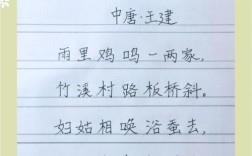 中唐·王建
雨里鸡鸣一两家，
竹溪村路板桥斜。
妇姑相唤浴蚕去，